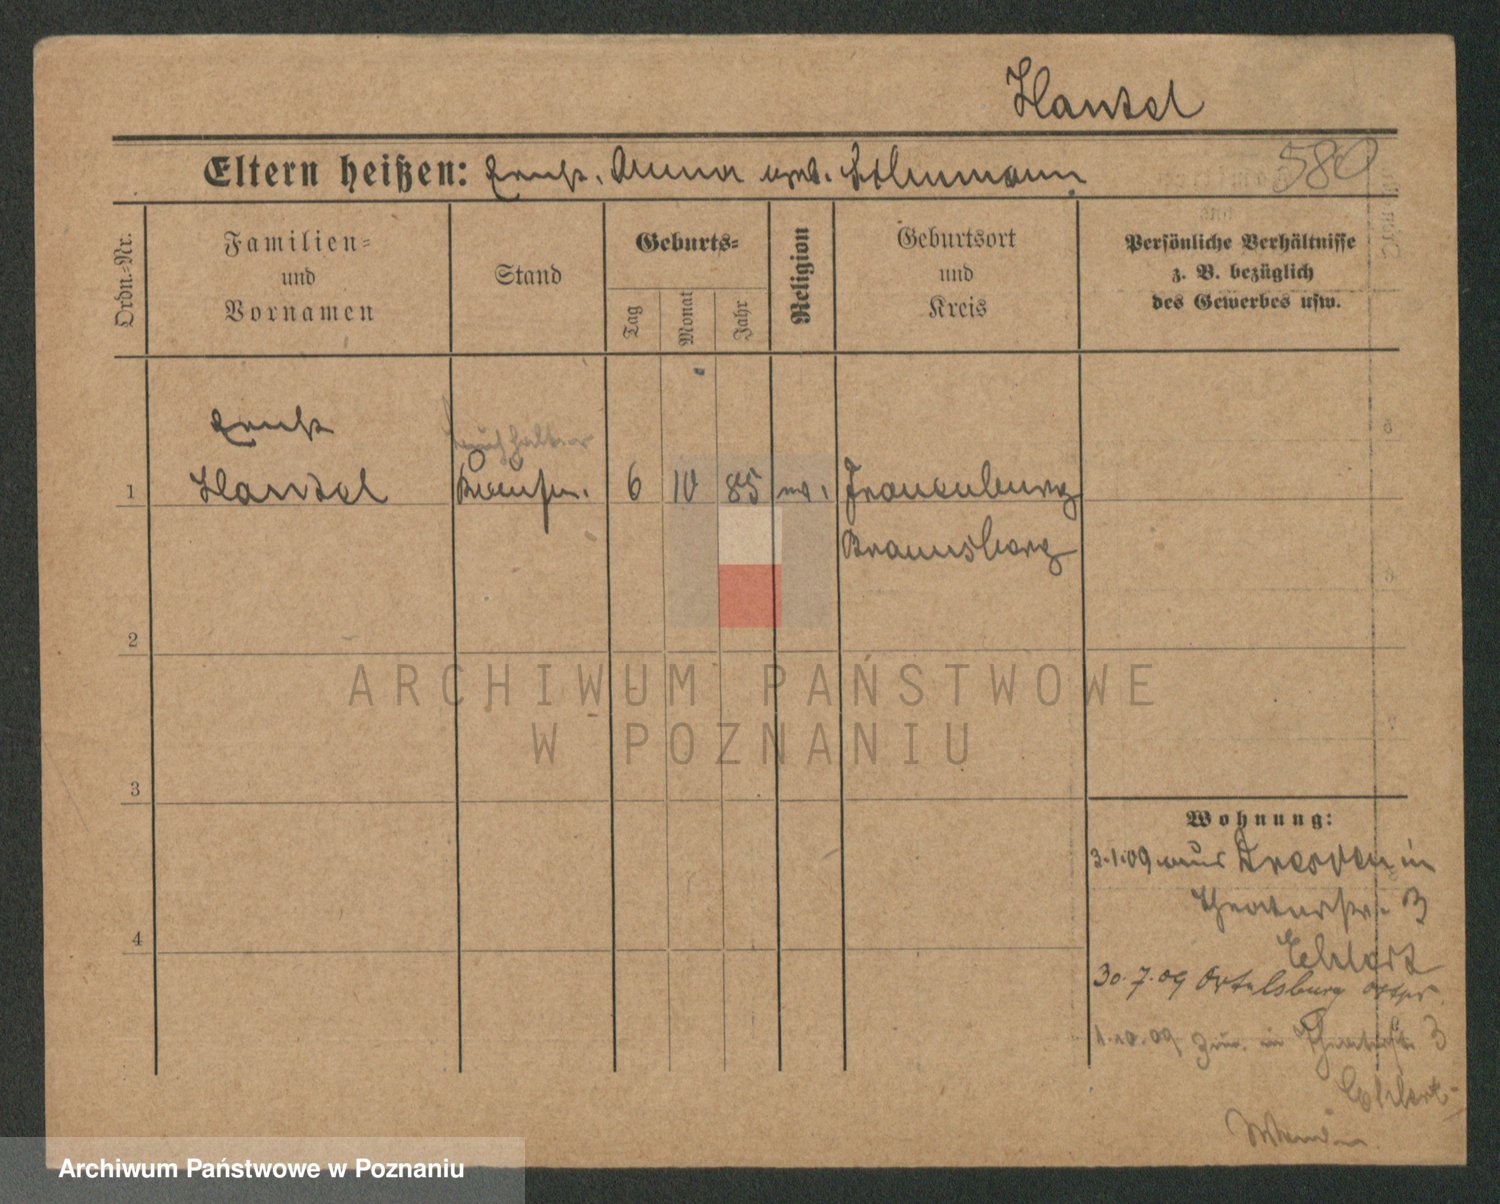 Hantel
Eltern heißen: Ernst. Anna geb.
580
Ordn.-Nr.
Familien-
und
Vornamen
Stand
Geburts-
Tag
Monat
Jahr
Religion
Geburtsort
und
Kreis
Persönliche Verhältnisse
z. B. bezüglich
des Gewerbes usw.
Ernst
Buchhalter
1 Hantel Kaufm. 6 10 85 Frauenburg
Braunsberg
2
3
4
Wohnung:
3.1.09 aus Dresden in
Theaterstr. 3
Ehlert
30.7.09 Ortelsburg Ostpr.
1.10.09 Zur. in Theaterstr. 3
Ehlert
ARCHIWUM PAŃSTWOWE
W POZNANIU
Archiwum Państwowe w Poznaniu